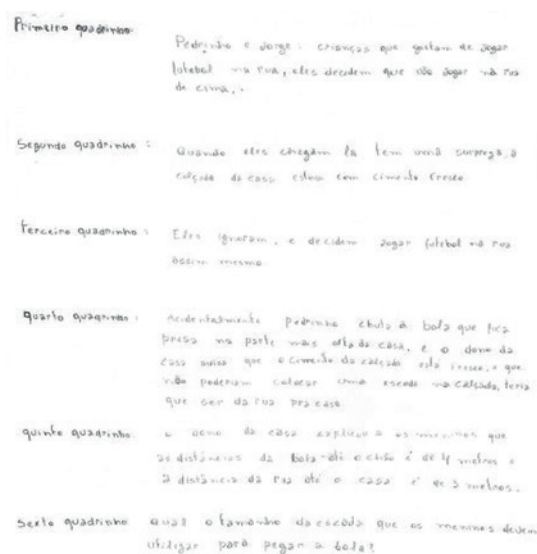 Primeiro quadrinho:
Pedrinho e Jorge: crianças que gostam de jogar
futebol na rua, eles decidem que vão jogar na rua
de cima.
Segundo quadrinho:
Quando eles chegam la tem uma surpresa, a
calçada da casa estava com cimento fresco
terceiro quadrinho:
Eles ignoram, e decidem jogar futebol na rua
assim mesmo
quarto quadrinho:
Acidentalmente pedrinho chuta a bola que fica
presa na parte mais alta da casa, e o dono da
casa avisa que o cimento da calçada está fresco, e que
não poderiam colocar uma escada na calçada, teria
que ser da rua pra casa
quinto quadrinho:
o dono da casa explicou a os meninos que
as distâncias da bola até o chão é de 4 metros e
a distância da rua até a casa é de 3 metros.
Sexto quadrinho
qual o tamanho da escada que os meninos devem
utilizar para pegar a bola?